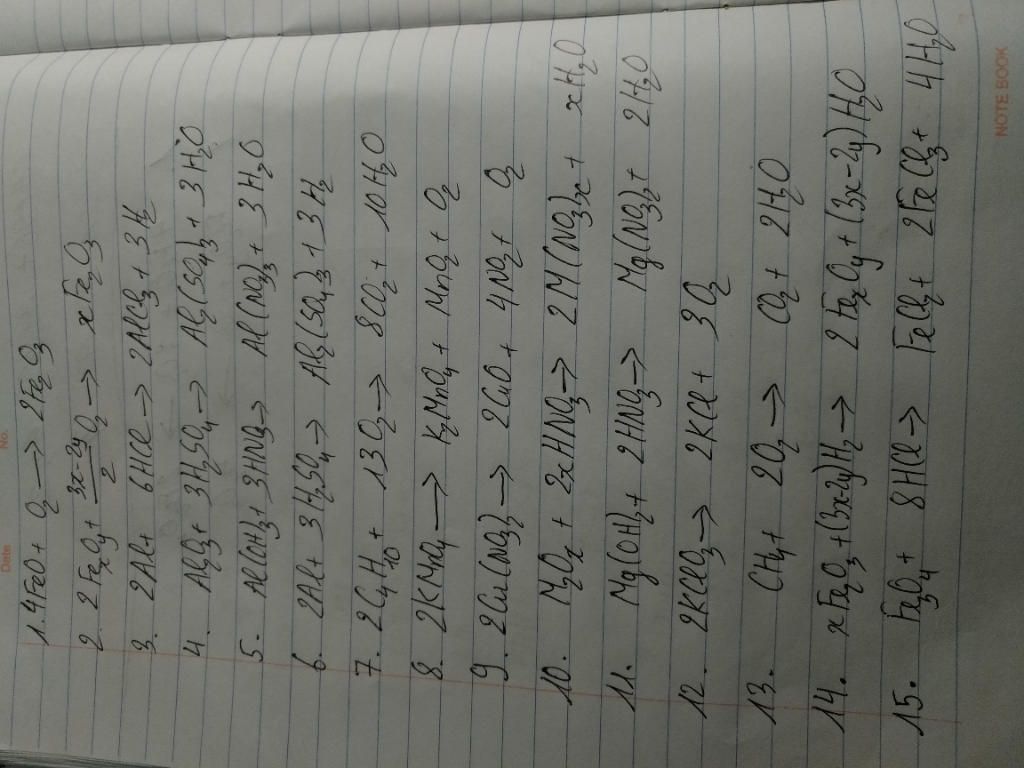 Date No.
1. 4FeO + O₂ → 2Fe₂O₃
2. 2FeₓOy + (3x-2y)/2 O₂ → xFe₂O₃
3. 2Al + 6HCl → 2AlCl₃ + 3H₂
4. Al₂O₃ + 3H₂SO₄ → Al₂(SO₄)₃ + 3H₂O
5. Al(OH)₃ + 3HNO₃ → Al(NO₃)₃ + 3H₂O
6. 2Al + 3H₂SO₄ → Al₂(SO₄)₃ + 3H₂
7. 2C₄H₁₀ + 13O₂ → 8CO₂ + 10H₂O
8. 2KMnO₄ → K₂MnO₄ + MnO₂ + O₂
9. 2Cu(NO₃)₂ → 2CuO + 4NO₂ + O₂
10. M₂Oₓ + 2xHNO₃ → 2M(NO₃)x + xH₂O
11. Mg(OH)₂ + 2HNO₃ → Mg(NO₃)₂ + 2H₂O
12. 2KClO₃ → 2KCl + 3O₂
13. CH₄ + 2O₂ → CO₂ + 2H₂O
14. xFe₂O₃ + (3x-2y)H₂ → 2FeₓOy + (3x-2y)H₂O
15. Fe₃O₄ + 8HCl → FeCl₂ + 2FeCl₃ + 4H₂O
NOTE BOOK